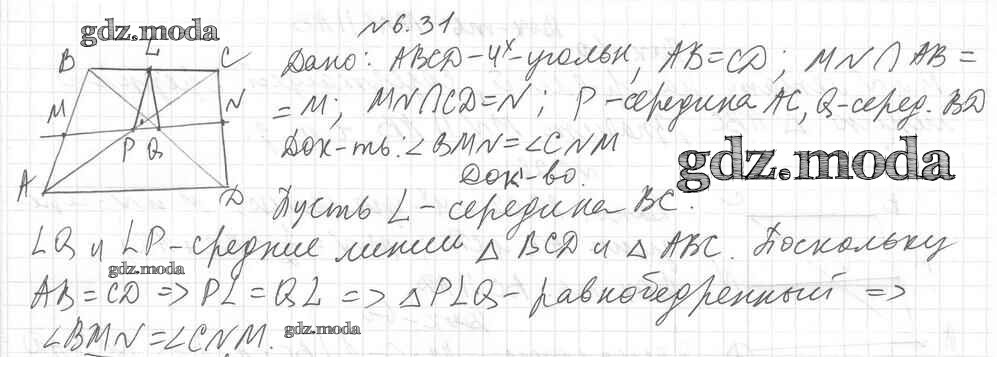 №6.31
gdz.moda
L
B
C
Дано: ABCD-4х-угольн, AB=CD; MN∩AB=
M
N
=M; MN∩CD=N; P-середина AC, Q-серед. BD
P Q
Док-ть: ∠BMN=∠CNM
gdz.moda
Док-во.
A
D
Пусть L-середина BC.
LQ и LP-средние линии △ BCD и △ ABC. Поскольку
gdz.moda
AB=CD => PL=QL => △PLQ-равнобедренный =>
∠BMN=∠CNM.
gdz.moda